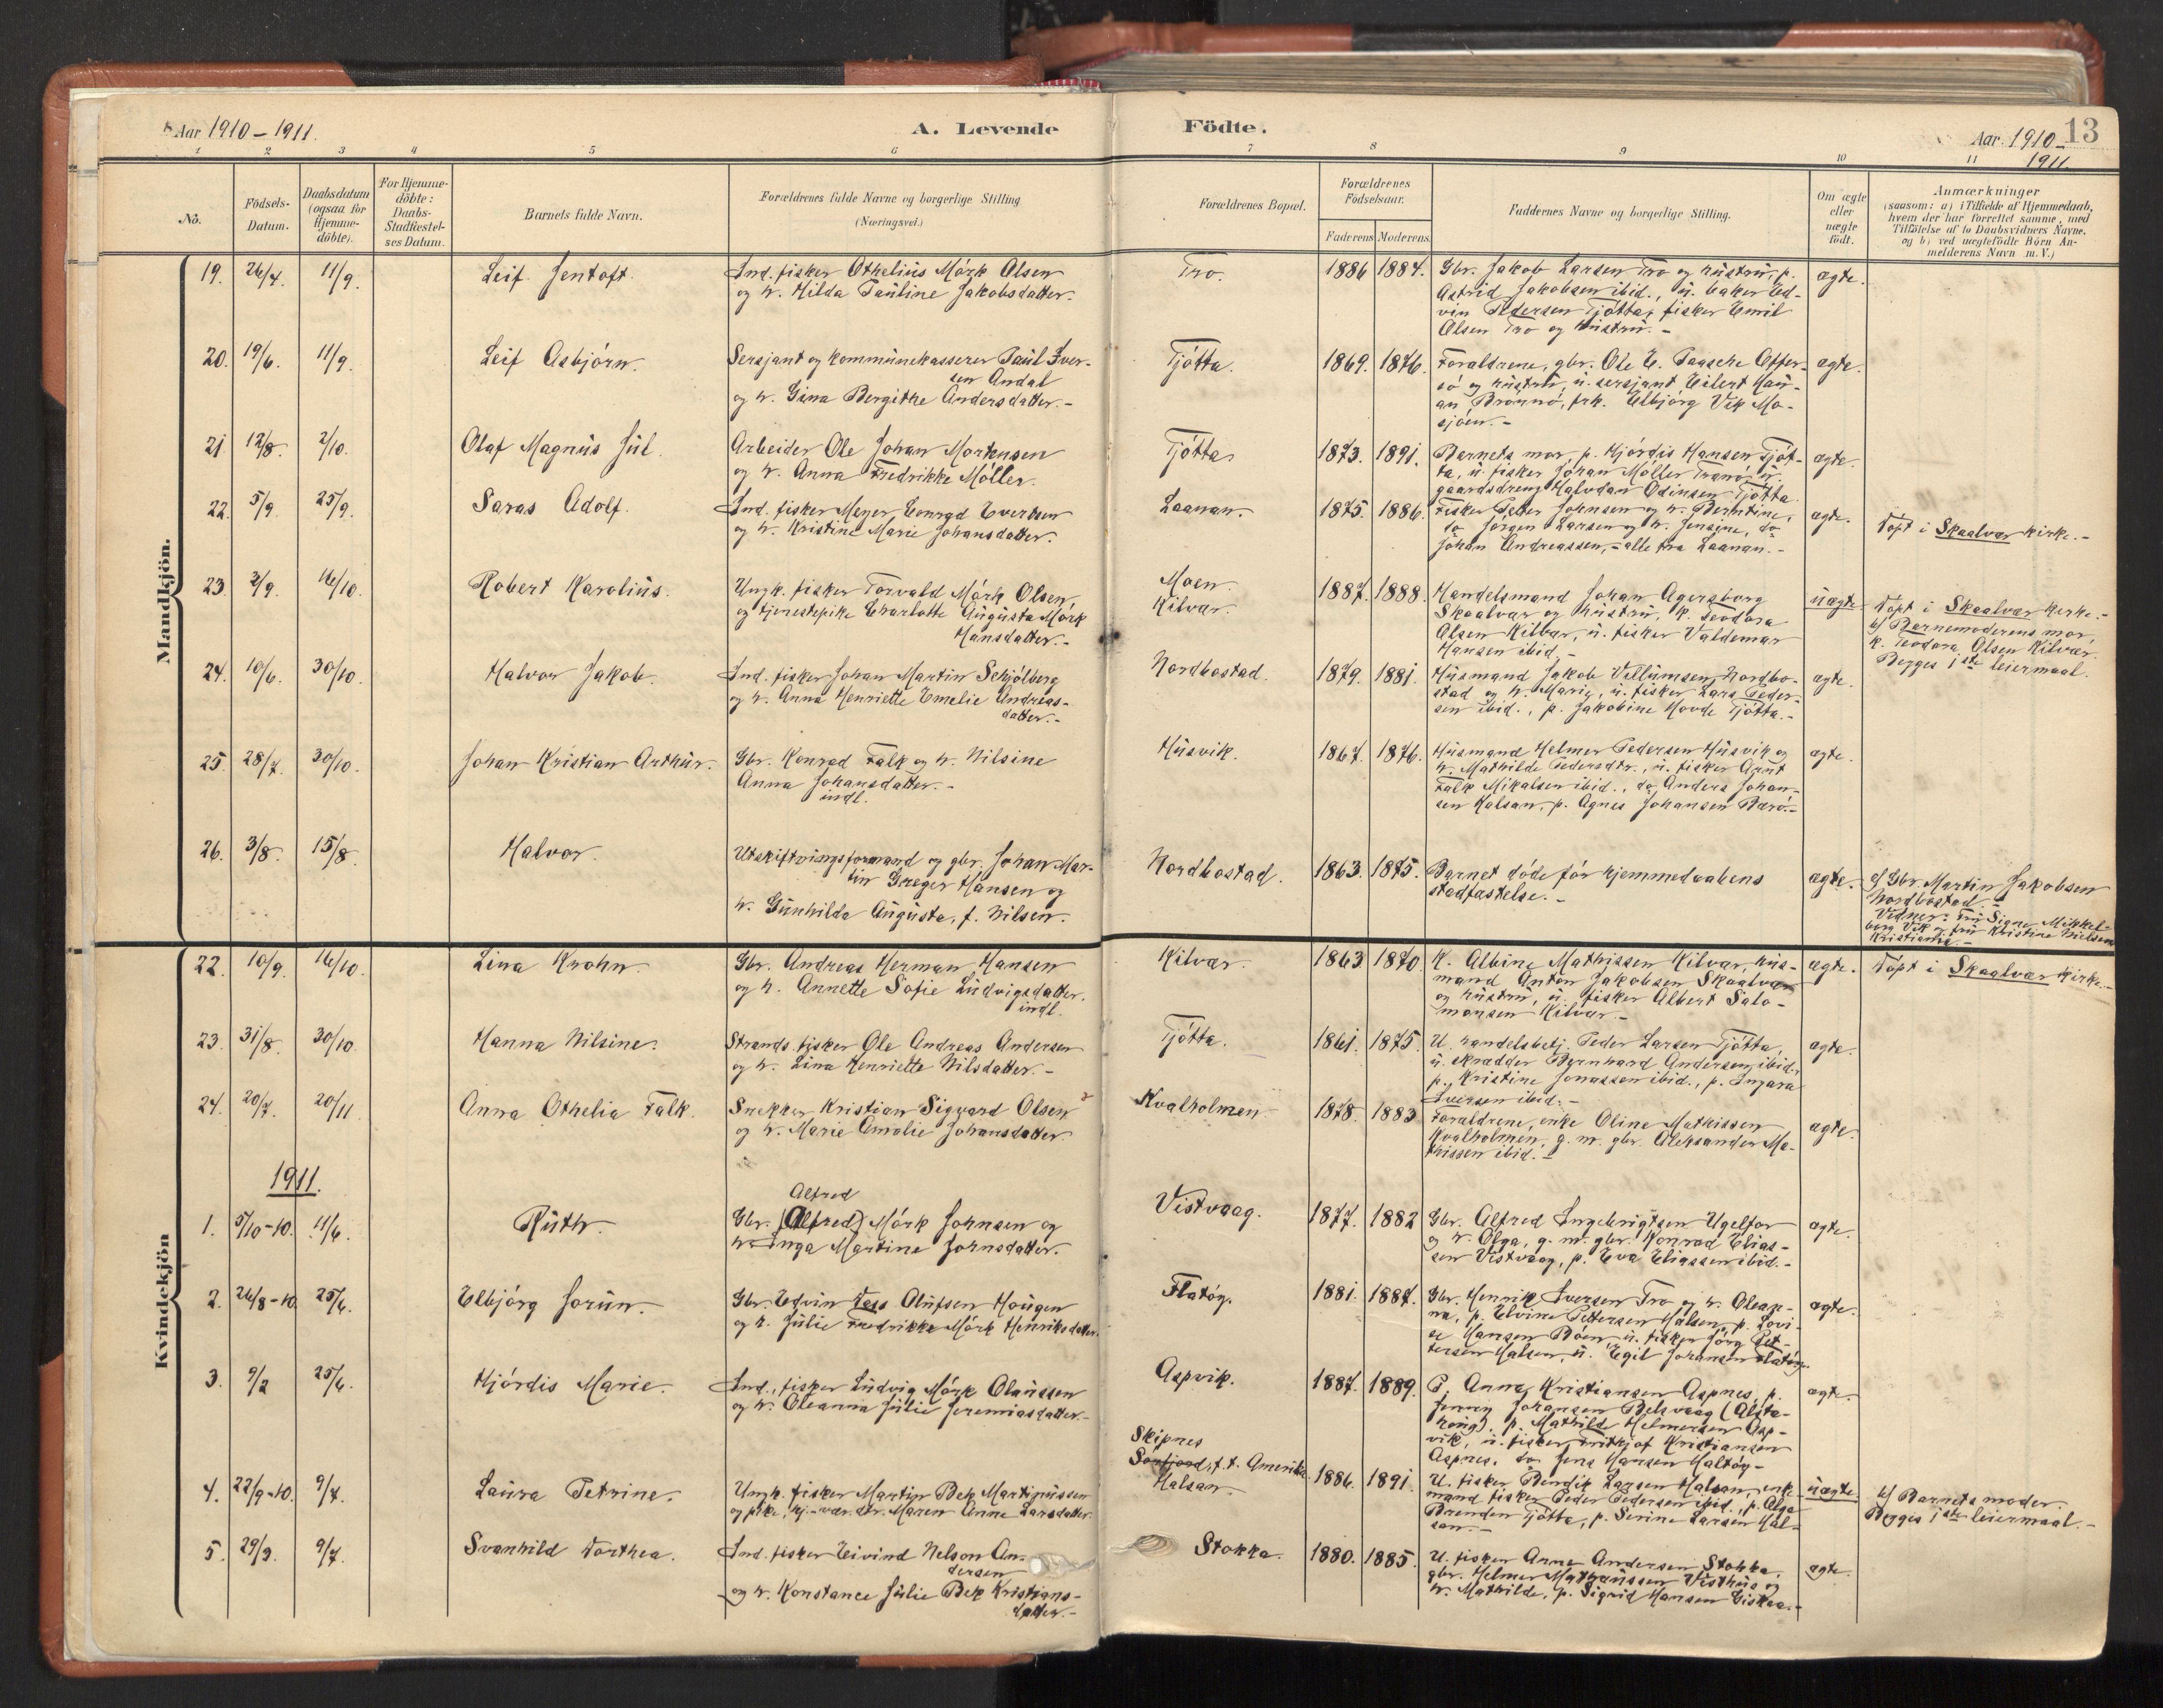 Aar 1910-1911.
A. Levende
Födte.
Aar 1910-
1911.
13
1 2 3 4 5 6 7 8 9 10 11
No.
Födsels-
Datum.
Daabsdatum
(ogsaa for
Hjemme-
döbte).
For Hjemme-
döbte:
Daabs-
Stadfæstel-
ses Datum.
Barnets fulde Navn.
Forældrenes fulde Navne og borgerlige Stilling
(Næringsvei.)
Forældrenes Bopæl.
Forældrenes
Födselsaar.
Faderens Moderens
Faddernes Navne og borgerlige Stilling.
Om ægte
eller
uægte
födt.
Anmærkninger
(saasom: a) i Tilfælde af Hjemmedaab,
hvem der har forrettet samme, med
Tilföielse af to Daabsvidners Navne.
og b) ved uægtefödte Börn An-
melderens Navn m.V.)
Mandkjön.
19. 26/7. 11/9. Leif Jentoft.
Ind. fisker Othelius Mörk Olsen
og h. Hilda Pauline Jakobsdatter.
Tro. 1886 1887.
Gbr. Jakob Larsen Tro og hustru, p.
Astrid Jakobsen ibid., u. baker Ed-
vin Pedersen Tjötta, fisker Emil
Olsen Tro og hustru. -
ægte.
20. 19/6. 11/9. Leif Asbjörn.
Sersjant og kommunekasserer Paul Iver-
sen Andal
og h. Gina Bergithe Andersdatter. -
Tjötta. 1869. 1876.
Forældrene, gbr. Ole E. Paasche Offer-
sö og hustru, u. sersjant Eilert Hau-
an Brönnö, frk. Elbjörg Vik Mo-
sjöen. -
ægte.
21. 12/8. 2/10. Olaf Magnus Jul.
Arbeider Ole Johan Mortensen
og h. Anna Fredrikke Möller.
Tjötta. 1873. 1891.
Barnets mor, p. Hjördis Hansen Tjöt-
ta, u. fisker Johan Möller Tranö, u.
gaardsdreng Halvdan Odinsen Tjötta.
ægte.
22. 5/9. 25/9. Saras Adolf.
Ind. fisker Meyer Conrad Evertsen
og h. Kristine Marie Johansdatter.
Laanan. 1875. 1886.
Fisker Peter Johnsen og h. Berntine,
do Jörgen Larsen og h. Jensine, do
Johan Andreassen, - alle fra Laanan. -
ægte.
Döpt i Skaalvær kirke. -
23. 2/9. 16/10. Robert Karolius.
Ungk. fisker Torvald Mörk Olsen
og tjenestepike Charlotte Augusta Mörk
Hansdatter. -
Moen.
Kilvær.
1887. 1888.
Handelsmand Johan Agersborg
Skaalvær og hustru, k. Teodora
Olsen Kilvær, u. fisker Valdemar
Hansen ibid. -
uægte
Döpt i Skaalvær kirke. -
b) Barnemoderens mor,
k. Teodora Olsen Kilvær.
Begges 1ste leiermaal.
24. 10/6. 30/10. Halvor Jakob.
Ind. fisker Johan Martin Schjölberg
og h. Anna Henriette Emelie Andreas-
datter. -
Nordbostad. 1879. 1881.
Husmand Jakob Villumsen Nordbo-
stad og h. Marie, u. fisker Lars Peder-
sen ibid., p. Jakobine Hovde Tjötta. -
ægte.
25. 28/7. 30/10. Johan Kristian Arthur.
Gbr. Konrad Falk og h. Nilsine
Anna Johansdatter. -
indl.
Husvik. 1867. 1876.
Husmand Helmer Pedersen Husvik og
h. Mathilde Pedersdtr., u. fisker Arnt
Falk Mikalsen ibid., do Anders Johan-
sen Kalsan, p. Agnes Johansen Bærö. -
ægte.
26. 3/8. 15/8. Halvor.
Utskiftningsformand og gbr. Johan Mar-
tin Greger Hansen og
h. Gunhilda Augusta, f. Nilsen.
Nordbostad. 1863. 1875.
Barnet döde för hjemmedaabens
stadfæstelse. -
ægte.
a) Gbr. Martin Jakobsen
Nordbostad. -
Vidner: Fru Signe Mikkel-
borg Vik og fru Kristine Nielsen
Kristiania. -
Kvindekjön
22. 10/9. 16/10. Lina Krohn.
Gbr. Andreas Herman Hansen
og h. Annette Sofie Ludvigsdatter.
indl.
Kilvær. 1863 1870.
K. Albine Mathissen Kilvær, hus-
mand Anton Jakobsen Skaalvær
og hustru, u. fisker Albert Salo-
monsen Kilvær. -
ægte.
Döpt i Skaalvær kirke. -
23. 31/8. 30/10. Hanna Nilsine.
Strands. fisker Ole Andreas Andersen
og h. Lina Henriette Nilsdatter. -
Tjötta. 1861. 1875.
U. handelsbetj. Peder Larsen Tjötta,
u. skrædder Bernhard Andersen ibid.,
p. Kristine Jonassen ibid., p. Ingara
Iversen ibid. -
ægte.
24. 20/7. 20/11. Anna Othelia Falk.
Snekker Kristian Sigvard Olsen
og h. Marie Amalie Johansdatter
Kvalholmen. 1878. 1883
Forældrene, enke Oline Mathissen
Kvalholmen, g. m. gbr. Aleksander Ma-
thissen ibid. -
ægte.
1911.
1. 5/10-10. 11/6. Ruth.
Alfred
Gbr. (Alfred) Mörk Johnsen og
h. Inga Martine Johnsdatter.
Vistvaag. 1877. 1882
Gbr. Alfred Ingebrigtsen Ugelfor
og h. Olga, g. m. gbr. Konrad Elias-
sen Vistvaag, p. Eva Eliassen ibid. -
ægte.
2. 26/8-10. 25/6. Elbjörg Jorun.
Gbr. Edvin Olufsen Haugen
og h. Julie Fredrikke Mörk Henriksdatter.
Flatöy. 1881. 1887.
Gbr. Henrik Iversen Tro og h. Olean-
na, p. Elvine Pettersen Halsen, p. Lovi-
se Hansen Böen, u. fisker Jörg Pet-
tersen Halsen, u. Egil Johansen Flatöy.
ægte.
3. 9/2 25/6. Hjördis Marie.
Ind., fisker Ludvig Mörk Olaussen
og h. Oleanna Julie Jeremiasdatter. -
Aspvik. 1887. 1889.
P. Anna Kristiansen Aspnes, p.
Jenny Johansen Belsvaag (Alsta-
houg), p. Mathilde Helmersen Asp-
vik, u. fisker Fritjof Kristiansen
Aspnes, do Jens Hansen Haltöy -
ægte.
4. 22/9-10. 9/7. Laura Petrine.
Ungk. fisker Martin Bek Martinussen
og pike, hj.-vær. dtr. Maren Anne Larsdatter.
Skipnes
Sörfjord, f.t. Amerika
Halsan.
1886. 1891.
U. fisker Bendik Larsen Halsan, enke-
mand fisker Peder Pedersen ibid., p. Olga
Brenden Tjötta, p. Serine Larsen Hal-
san. -
uægte
b) Barnets moder.
Begges 1ste leiermaal. -
5. 29/3. 9/7. Svanhild Dorthea.
Ind. fisker Eivind Nelson An-
dersen
og h. Konstance Julie Bek Kristians-
datter. -
Stokka. 1880. 1885.
U. fisker Arne Andersen Stokka,
gbr. Helmer Mathæussen Visthus og
h. Mathilde, p. Sigrid Hansen Eiskaa. -
ægte.